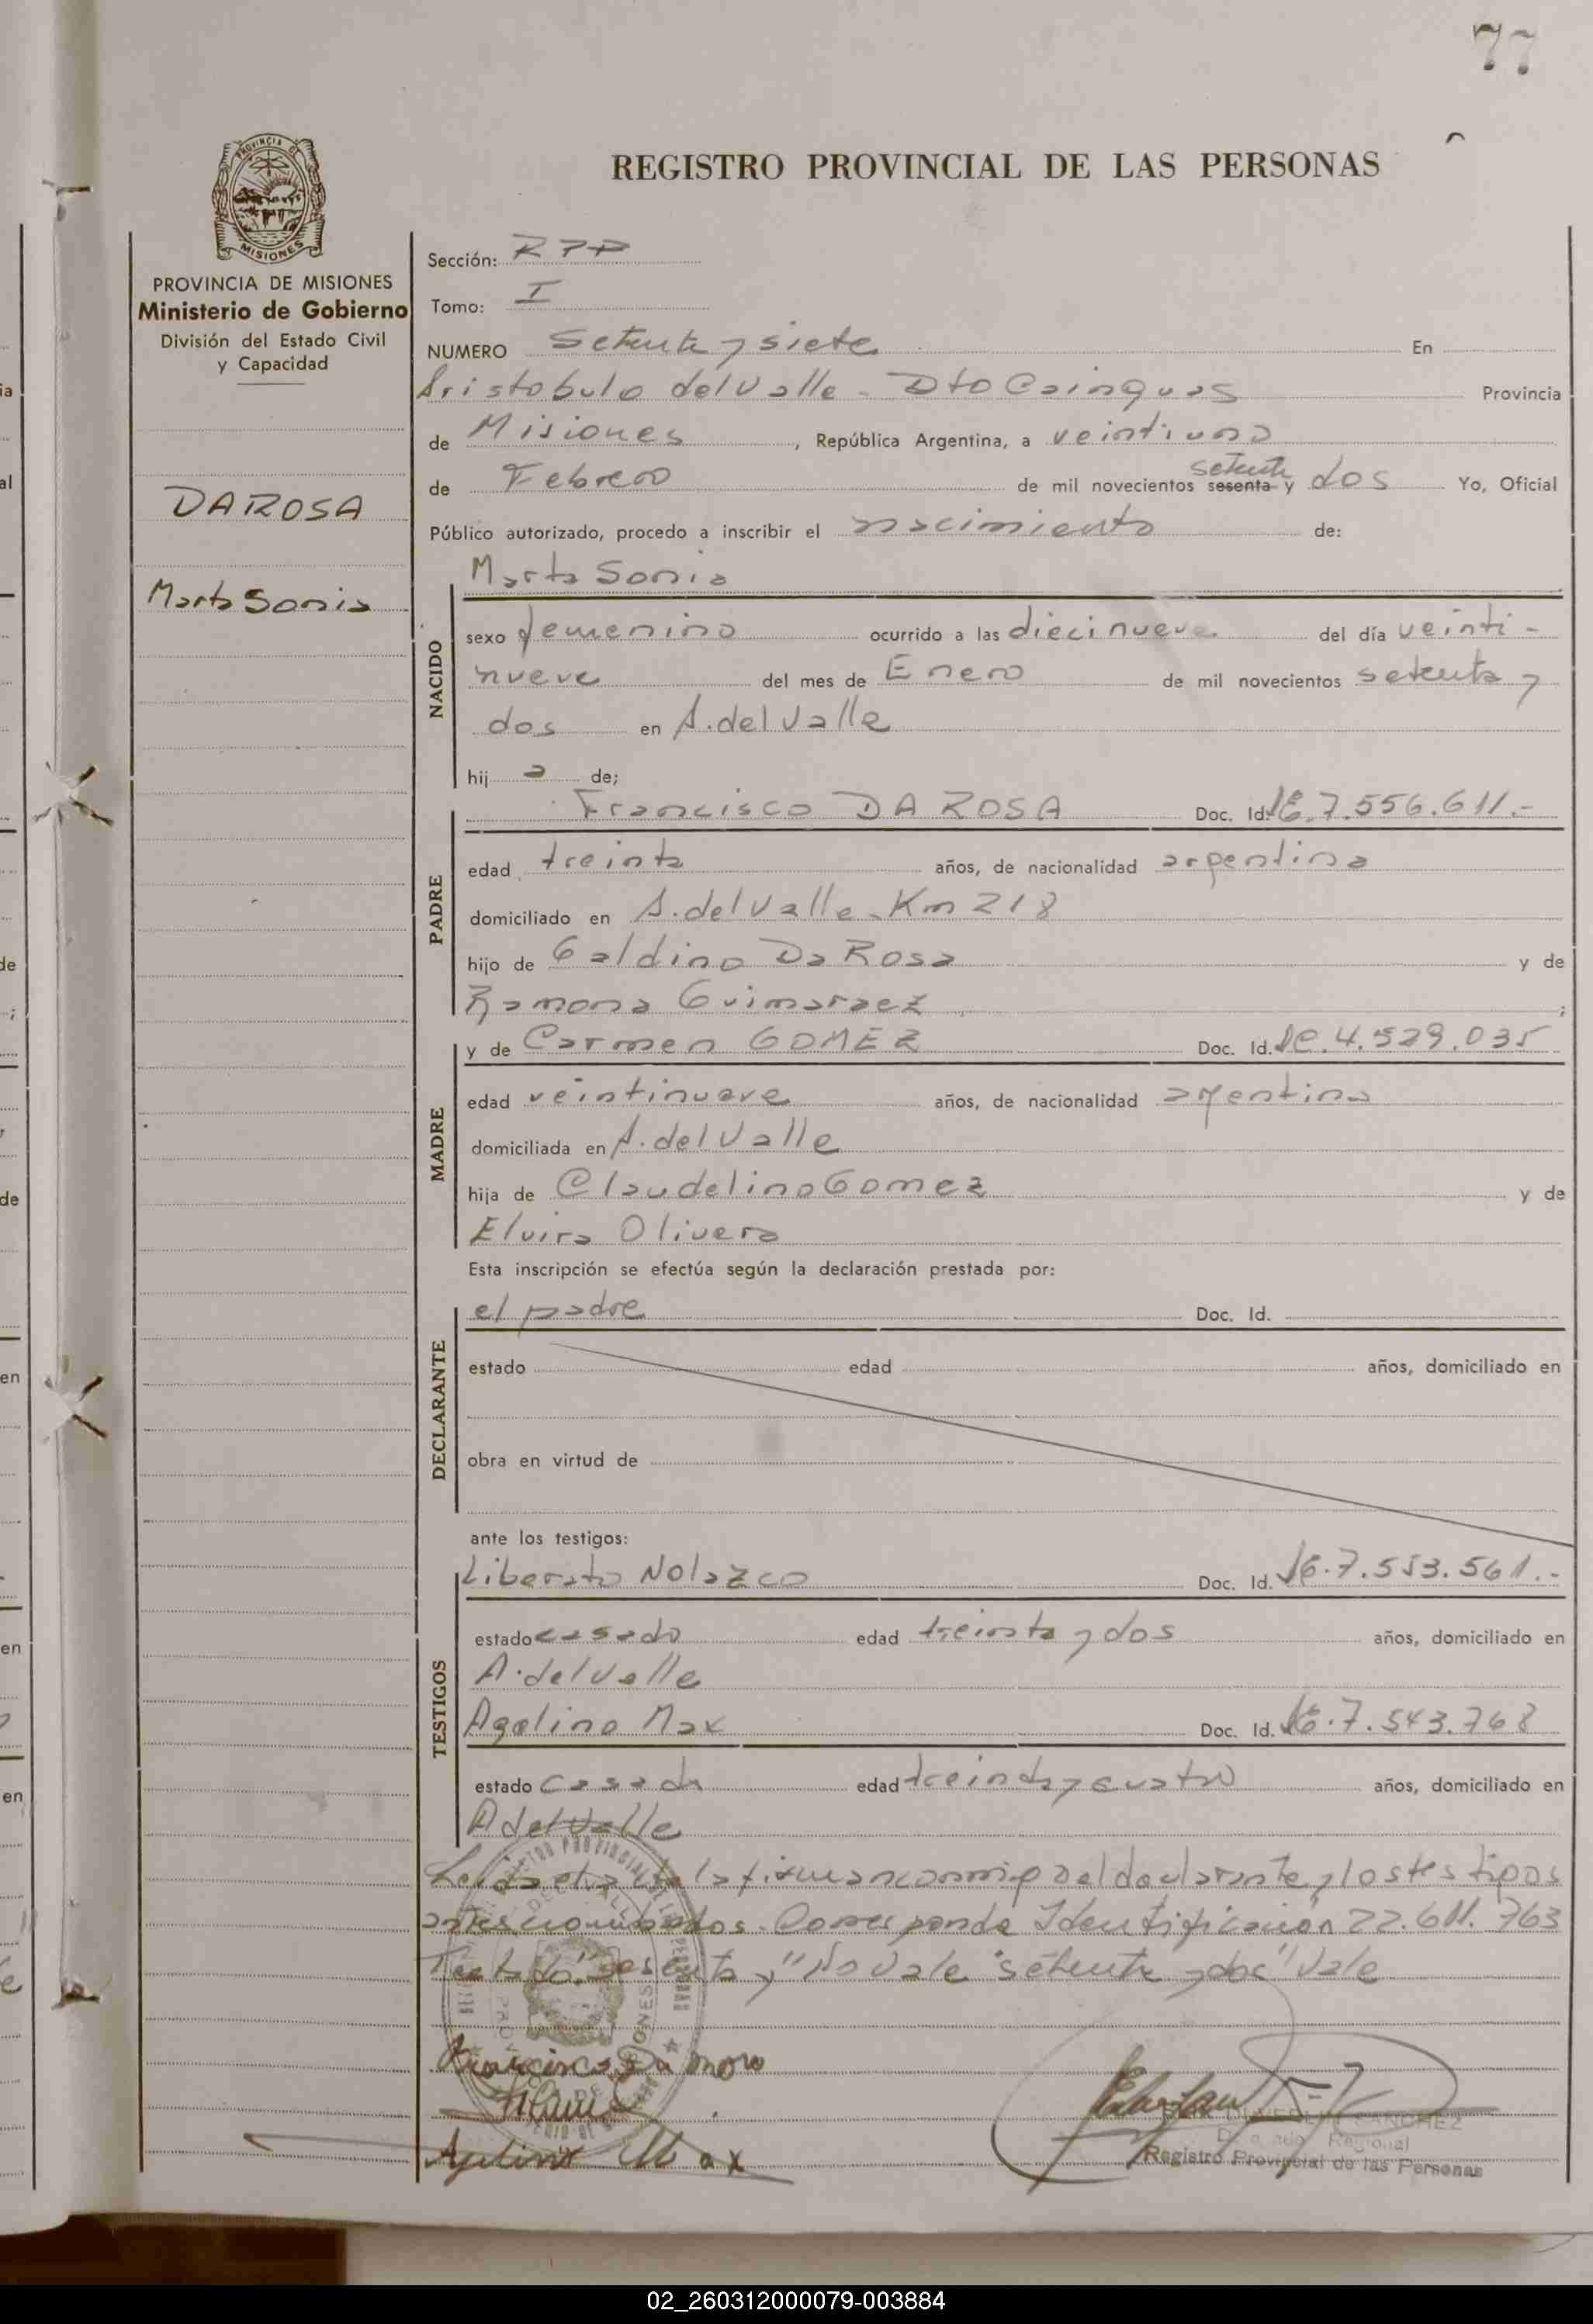 77
REGISTRO PROVINCIAL DE LAS PERSONAS
PROVINCIA DE MISIONES
Ministerio de Gobierno
División del Estado Civil
y Capacidad
DA ROSA
Marta Sonia
Sección:
Tomo: I
NUMERO Setenta y siete En
Aristobulo del Valle - Dto Cainguas Provincia
de Misiones, República Argentina, a veintiuno
de Febrero de mil novecientos sesenta y setenta dos Yo, Oficial
Público autorizado, procedo a inscribir el nacimiento de:
Marta Sonia
NACIDO
sexo femenino ocurrido a las diecinueve del día veinti-
nueve del mes de Enero de mil novecientos setenta y
dos en A. del Valle
hij a de;
PADRE
Francisco DA ROSA Doc. Id. 7.556.611.-
edad treinta años, de nacionalidad argentina
domiciliado en A. del Valle - Km 218
hijo de Galdino Da Rosa y de
Ramona Guimaraez ;
MADRE
y de Carmen GOMEZ Doc. Id. 4.529.035
edad veintinueve años, de nacionalidad argentina
domiciliada en A. del Valle
hija de Claudelino Gomez y de
Elvira Olivera
Esta inscripción se efectúa según la declaración prestada por:
DECLARANTE
el padre Doc. Id.
estado edad años, domiciliado en
obra en virtud de
ante los testigos:
TESTIGOS
Liberato Nolazco Doc. Id. 7.553.561.-
estado casado edad treinta y dos años, domiciliado en
A. del Valle
Agelino Max Doc. Id. 7.543.768
estado casado edad treinta y cuatro años, domiciliado en
A del Valle
Leida el acta la firman conmigo el declarante y los testigos
antes nombrados. Corresponde Identificación 22.611.763
Testado: "sesenta y" No Vale "setenta y dos" Vale
Agelino Max
SANCHEZ
Regional
Registro Provincial de las Personas
02_260312000079-003884